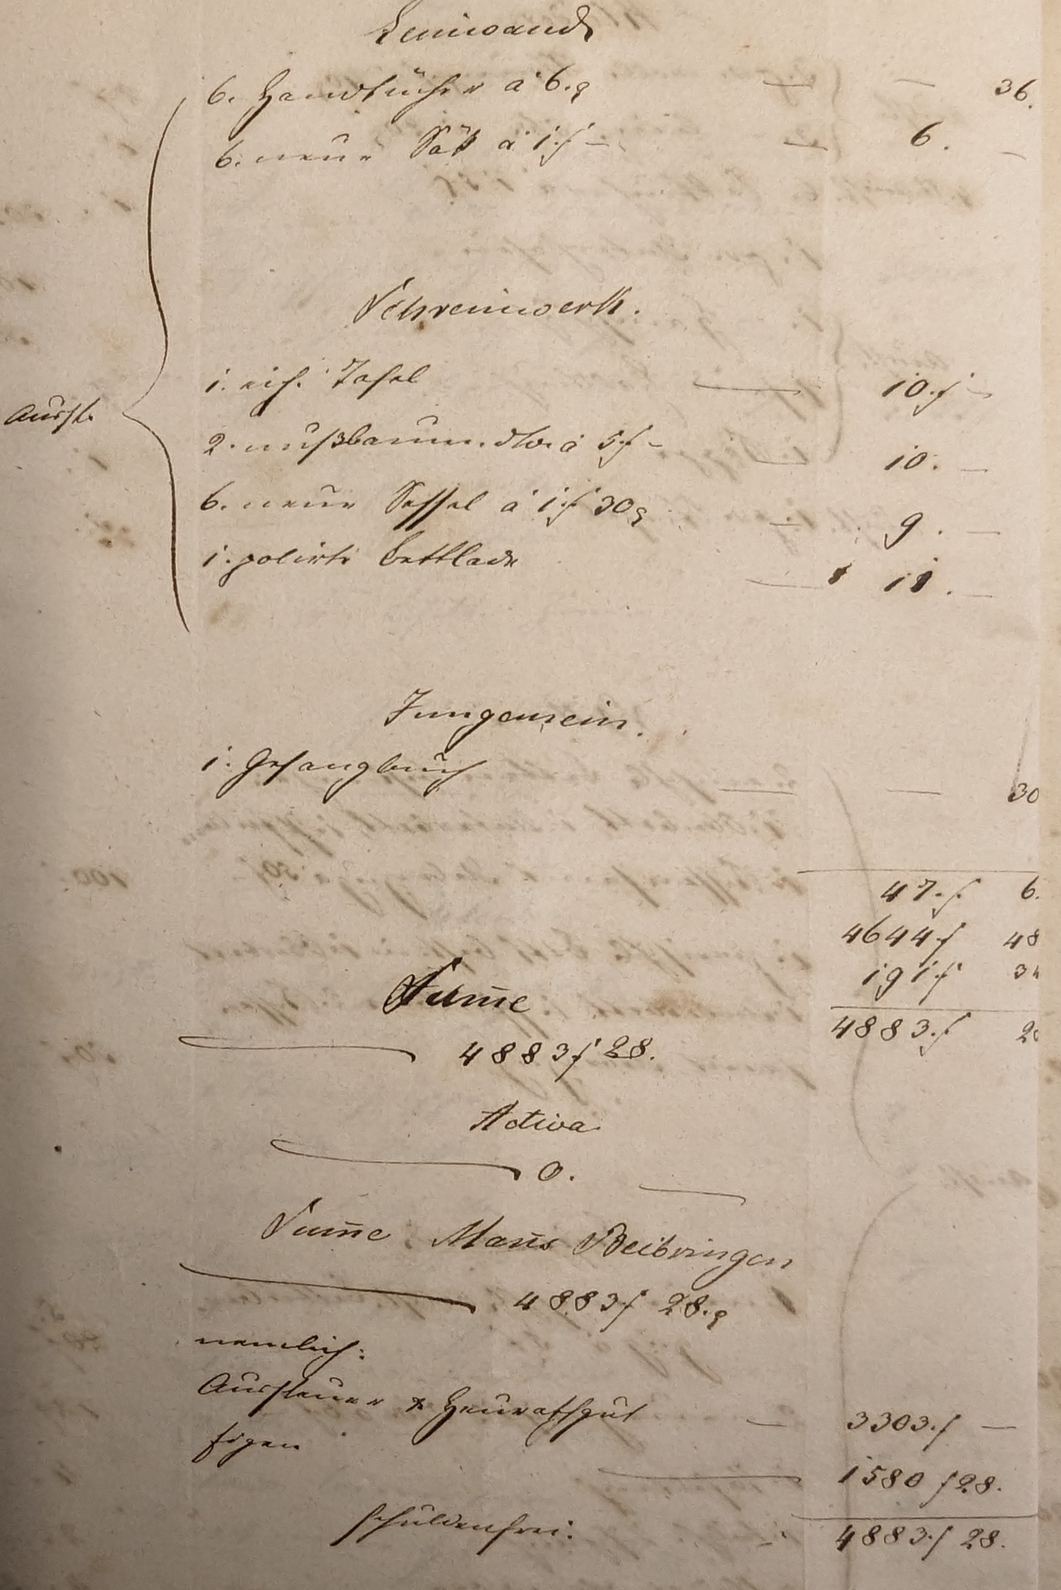 Leinwand
6. Handtücher à 6.x — — 36.
6. neue Säk à 1.f — — 6. —
Schreinwerk.
1. eich. Tafel — 10.f —
Ausst.
2. nußbaumene à 5f — — 10. —
6. neue Sessel à 1.f 30x — 9. —
1. polirte Bettlade — 11. —
Inngemein.
1. Gesangbuch — — 30
47.f 6.
4644f 48
191f 34
Sum̄e
4883.f 28
4883f 28.
Activa
0. —
Sum̄e Man̄s Beibringen
4883f 28.x
nemlich:
Aussteuer & Heurathgut — 3303.f —
eigen — 1580 f 28.
schuldenfrei. 4883.f 28.